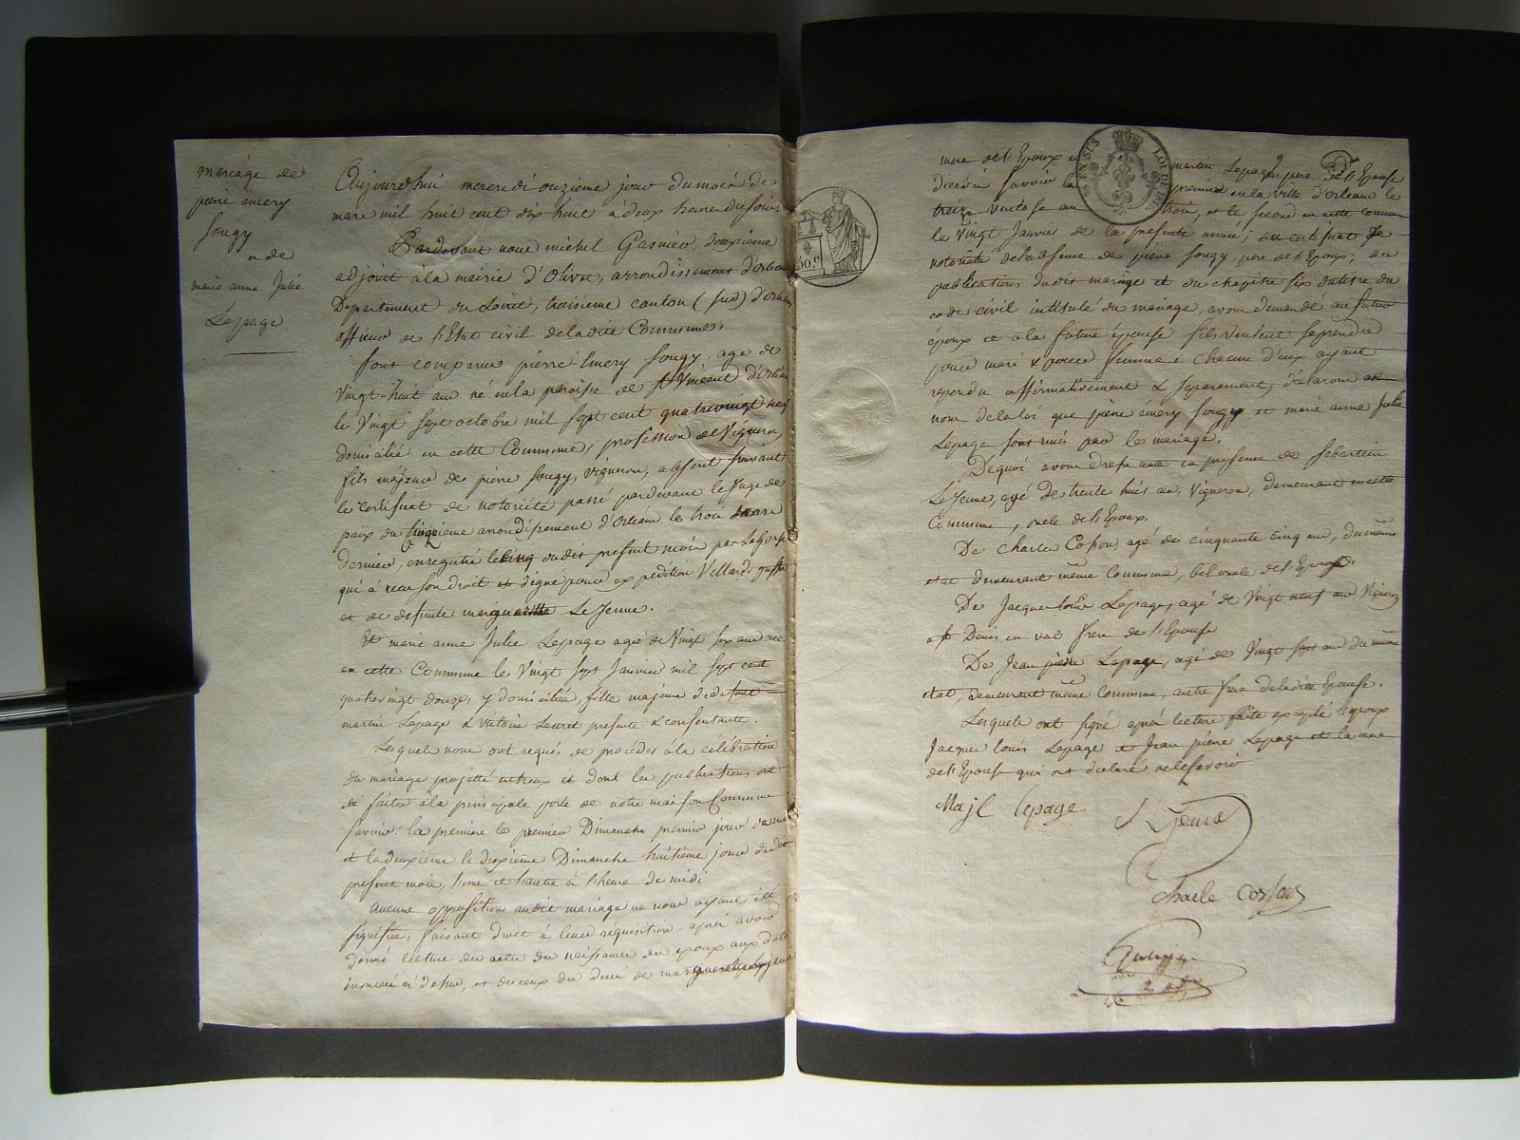 mariage de
pierre emery
Sougy
& de
marie anne Julie
Lepage
Aujourd'hui mercredi onzième jour du mois de
mars mil huit cent dix huit à deux heures du soir
Pardevant nous michel Gasnier, deuxieme
adjoint à la mairie d'Olivet, arrondissement d'Orléans
Département du Loiret, troisieme canton (sud) d'orléans
officier de l'Etat civil de la dite Commune,
Sont comparus pierre Emery Sougy age de
Vingt-huit ans né en la paroisse de St Vincent d'Orléans
le Vingt Sept octobre mil sept cent quatrevingt neuf
domicilié en cette Commune, profession de Vigneron,
fils majeur de pierre Sougy, Vigneron, absent suivant
le certificat de notoriété passé pardevant le Juge de
paix du Cinquième arrondissement d'Orléans le trois
dernier, enregistré le cinq du present mois par
qui a recu son droit signé pour expédition Villard
et de defunte marguerite LeJeune.
Et marie anne Julie Lepage agée de Vingt six ans née
en cette Commune le Vingt sept Janvier mil sept cent
quatrevingt douze, y domiciliée, fille majeure de defunt
martin Lepage & Victoire presente & consentante.
Lesquels nous ont requis de procéder à la célébration
du mariage projetté entreux et dont les publications ont
été faites à la principale porte de notre maison Commune
savoir: la première le premier Dimanche premier jour
et la deuxième le deuxième Dimanche huitième jour du dit
present mois, l'une et l'autre à l'heure de midi
Aucune opposition audit mariage ne nous ayant été
signifiée, faisant droit à leur requisition, après avoir
donné lecture des actes de naissance des epoux aux dates
énoncées ci dessus, et de ceux du décès de marguerite lejeune
mere de l'Epoux & martin Lepage père de l'Epouse
Décédés savoir la première en la ville d'orléans le
treize an trois, et le second en cette commune
le Vingt Janvier de la presente année; du certificat de
notoriété de l'absence de pierre Sougy, pere de l'Epoux; des
publications dudit mariage et du chapitre six du titre du
code civil intitulé du mariage, avons demandé au futur
époux et a la future épouse s'ils veulent se prendre
pour mari & pour femme; chacun d'eux ayant
repondu affirmativement & separement, déclarons au
nom de la loi que pierre émery Sougy et marie anne Julie
Lepage sont unis par le mariage.
De quoi avons dressé acte en presence de Sebastien
LeJeune, agé de trente huit ans, Vigneron, demeurant en cette
Commune, oncle de l'Epoux.
De Charles agé de cinquante cinq ans, du même
etat demeurant même Commune, bel oncle de l'Epoux.
De Jacque louis Lepage, agé de Vingt neuf ans Vigneron
a St Denis en val frere de l'Epouse
De Jean pierre Lepage, agé de Vingt ans du même
etat, demeurant même Commune, autre frere de la dite Epouse.
Lesquels ont signé après lecture faite excepté l'époux
Jacques louis Lepage & Jean pierre Lepage et la mere
de l'Epouse qui ont declaré ne le savoir
Majl lepage
S LJeune
Charle